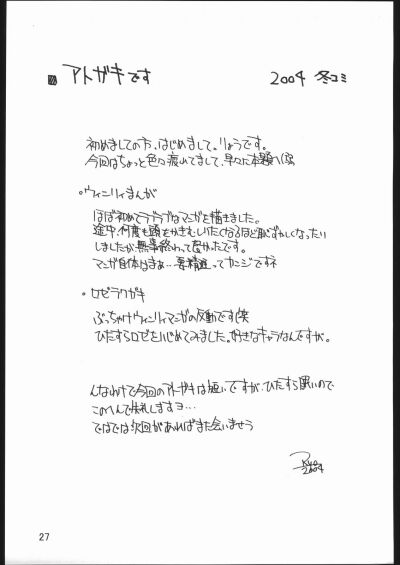 アトガキです 2004 冬コミ
初めましての方、はじめまして。りょうです。
今回はちょっと色々疲れてまして、早々に本題へ(笑
・ウィンリィまんが
ほぼ初めてラブラブなマンガを描きました。
途中、何度も頭をかきむしりたくなるほど恥ずかしくなったり
しましたが、無事終わって良かったです。
マンガ自体はまぁ…要精進ってカンジですネ
・ロゼラクガキ
ぶっちゃけウィンリィマンガの反動です(笑
ひたすらロゼをいじめてみました。好きなキャラなんですが。
んなわけで今回のアトガキは短いですが、ひたすら眠いので
このへんで失礼しますヨ…
ではでは次回があればまた会いませう
Ryo
2004
27